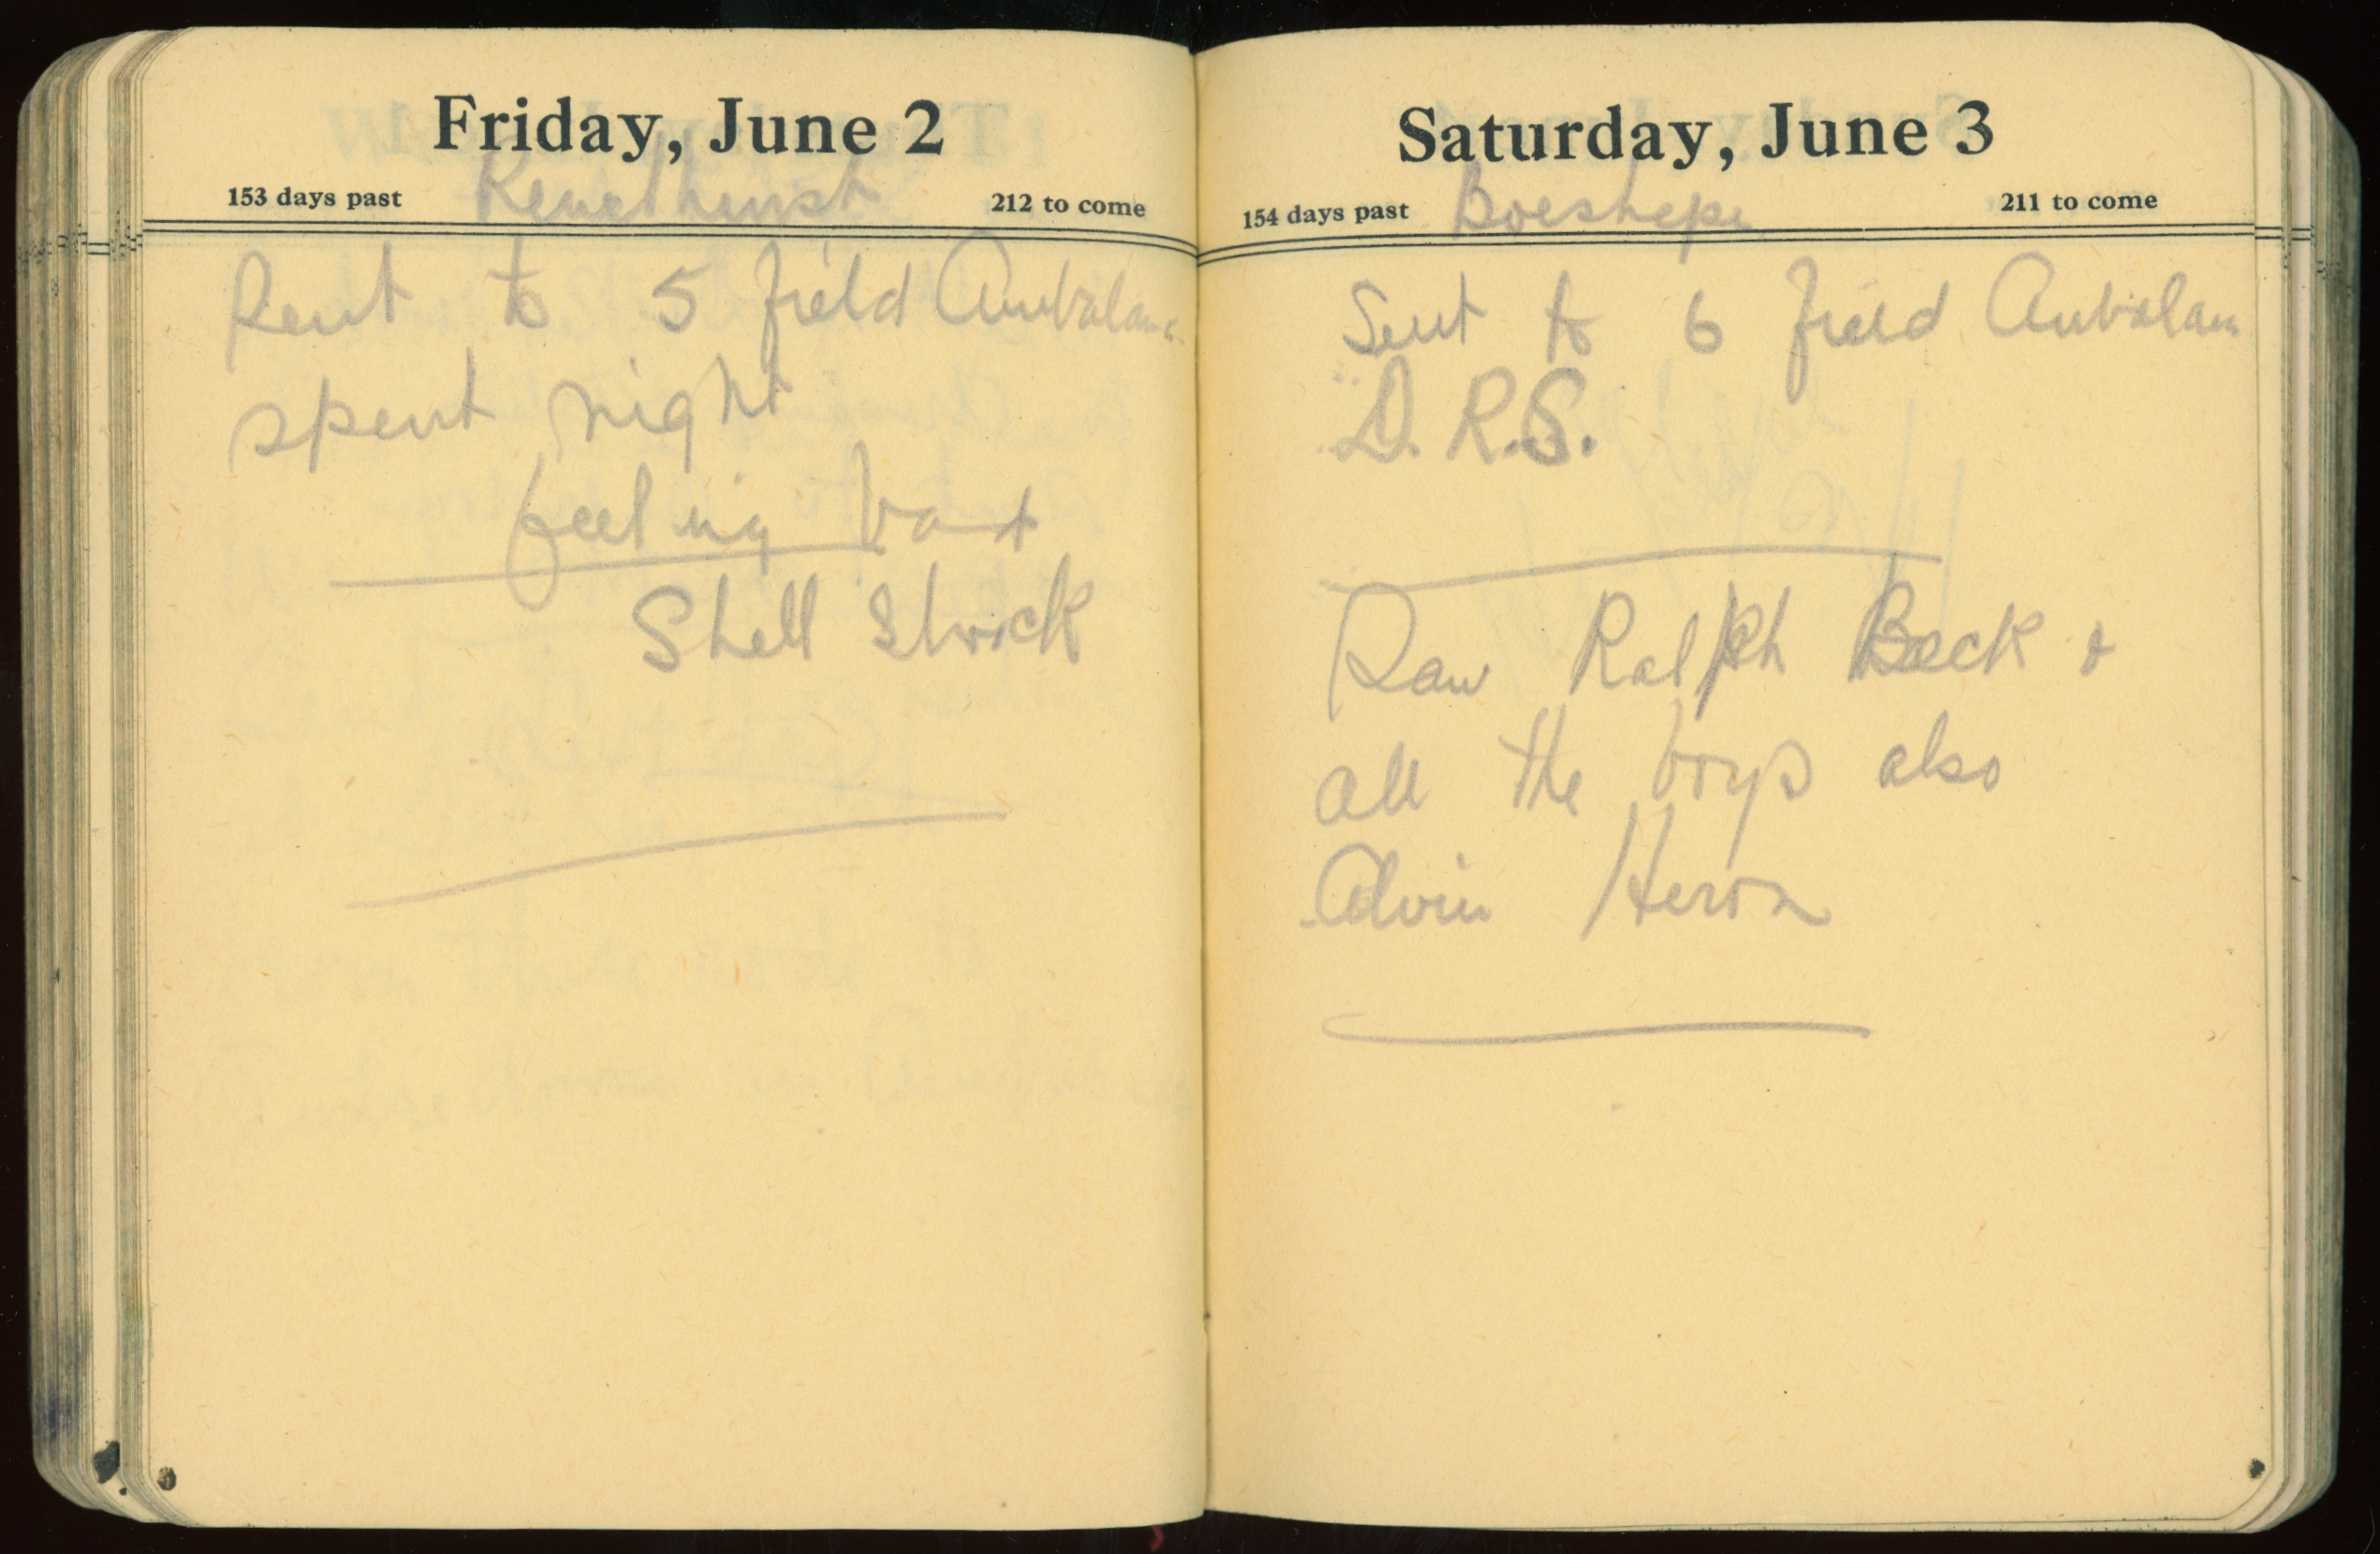 Friday, June 2
153 days past Renelhurst 212 to come
Sent to 5 field Ambulanc
spent night
feeling bad
Shell Shock
Saturday, June 3
154 days past Boeshepe 211 to come
Sent to 6 field Ambulan
D.R.S.
Saw Ralph Beck &
all the boys also
Alvin Heron